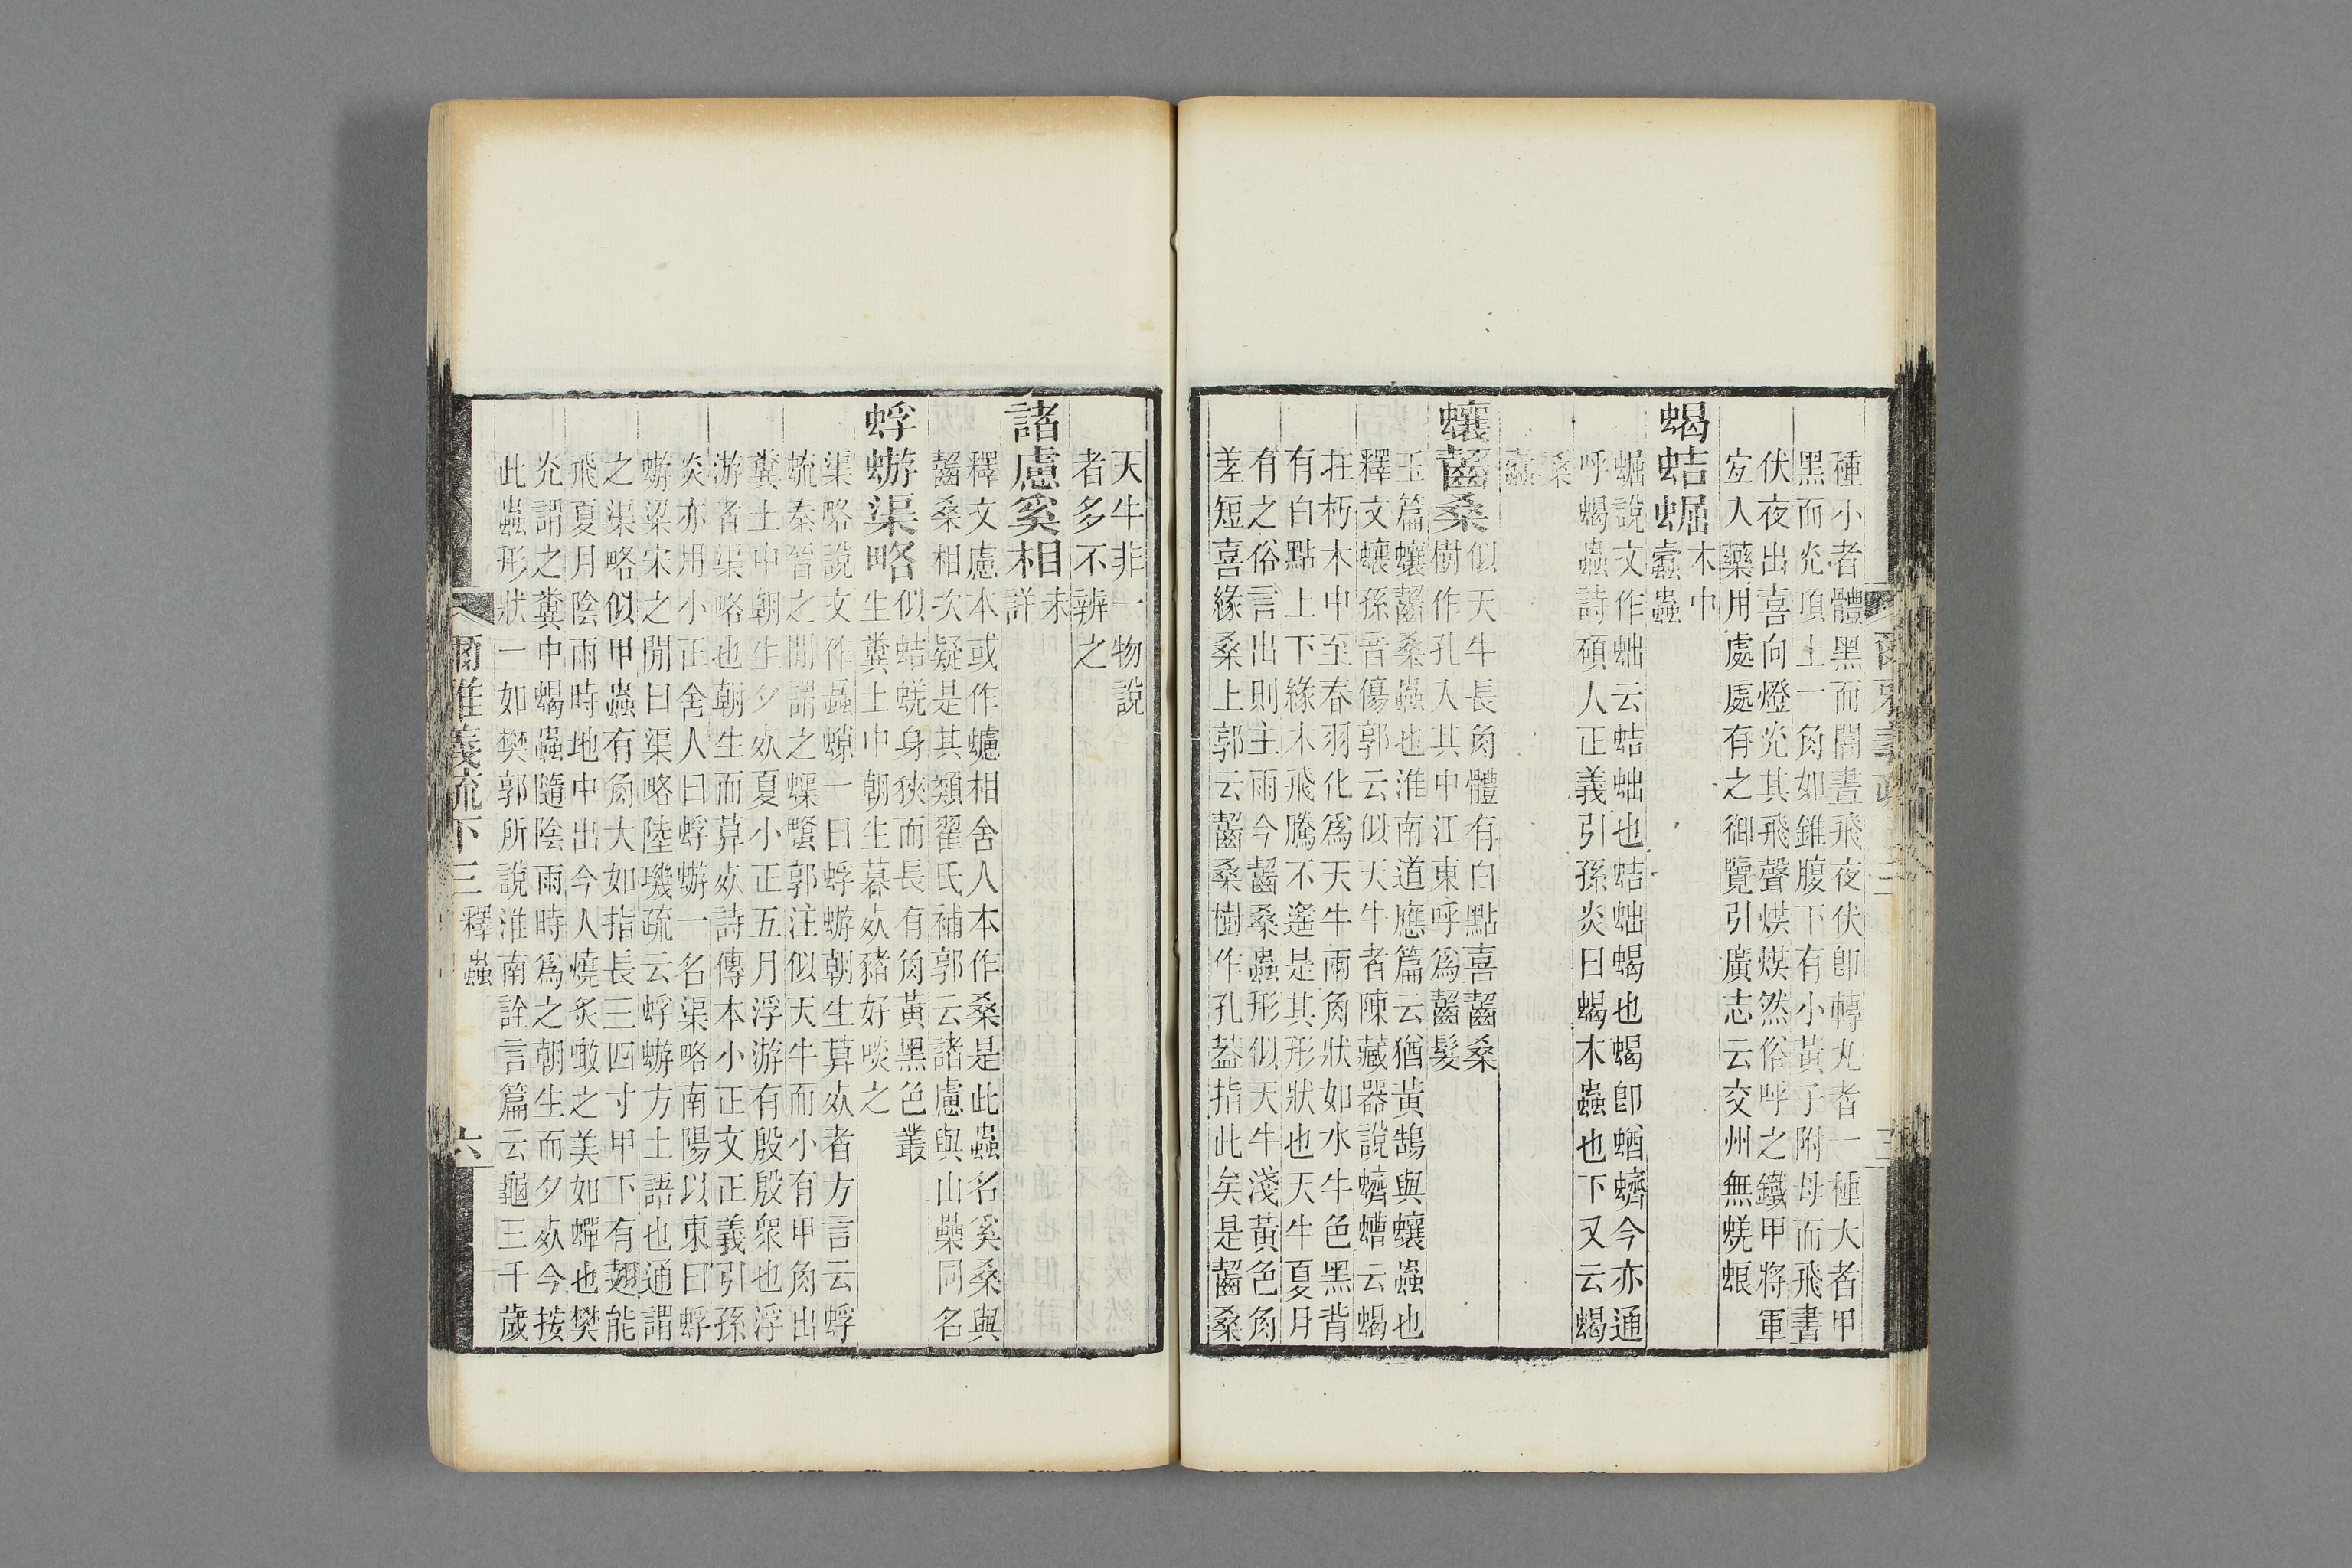 種小者體黑而闇晝飛夜伏卽轉丸者一種大者甲
黑而光頂上一角如錐腹下有小黃子附母而飛晝
伏夜出喜向燈光其飛聲烘烘然俗呼之鐵甲將軍
宐入藥用處處有之御覽引廣志云交州無蜣蜋
蝎蛣𧌑木中
蠹蟲
𧌑說文作蚰云蛣蚰也蛣蚰蝎也蝎卽蝤蠐今亦通
呼蝎蟲詩碩人正義引孫炎曰蝎木蟲也下又云蝎
桑
蠹
蠰齧桑似天牛長角體有白點喜齧桑
樹作孔入其中江東呼爲齧髮
玉篇蠰齧桑蟲也淮南道應篇云猶黃鵠與蠰蟲也
釋文蠰孫音傷郭云似天牛者陳藏器說蠐螬云蝎
在朽木中至春羽化爲天牛兩角狀如水牛色黑背
有白點上下緣木飛騰不遙是其形狀也天牛夏月
有之俗言出則主雨今齧桑蟲形似天牛淺黃色角
差短喜緣桑上郭云齧桑樹作孔葢指此矣是齧桑
天牛非一物說
者多不辨之
諸慮奚相未
詳
釋文慮本或作蠦相舍人本作桑是此蟲名奚桑與
齧桑相次疑是其類翟氏補郭云諸慮與山櫐同名
蜉蝣渠略似蛣蜣身狹而長有角黃黑色叢
生糞土中朝生暮㱙豬好啖之
渠略說文作蟲螰一曰蜉蝣朝生莫㱙者方言云蜉
𧊿秦晉之閒謂之蟝䗫郭注似天牛而小有甲角出
糞土中朝生夕㱙夏小正五月浮游有殷殷衆也浮
游者渠略也朝生而莫㱙詩傳本小正文正義引孫
炎亦用小正舍人曰蜉蝣一名渠略南陽以東曰蜉
蝣梁宋之閒曰渠略陸璣疏云蜉蝣方土語也通謂
之渠略似甲蟲有角大如指長三四寸甲下有翅能
飛夏月陰雨時地中出今人燒炙噉之美如蟬也樊
光謂之糞中蝎蟲隨陰雨時爲之朝生而夕㱙今按
此蟲形狀一如樊郭所說淮南詮言篇云龜三千歲
爾雅義疏下三 釋蟲 六